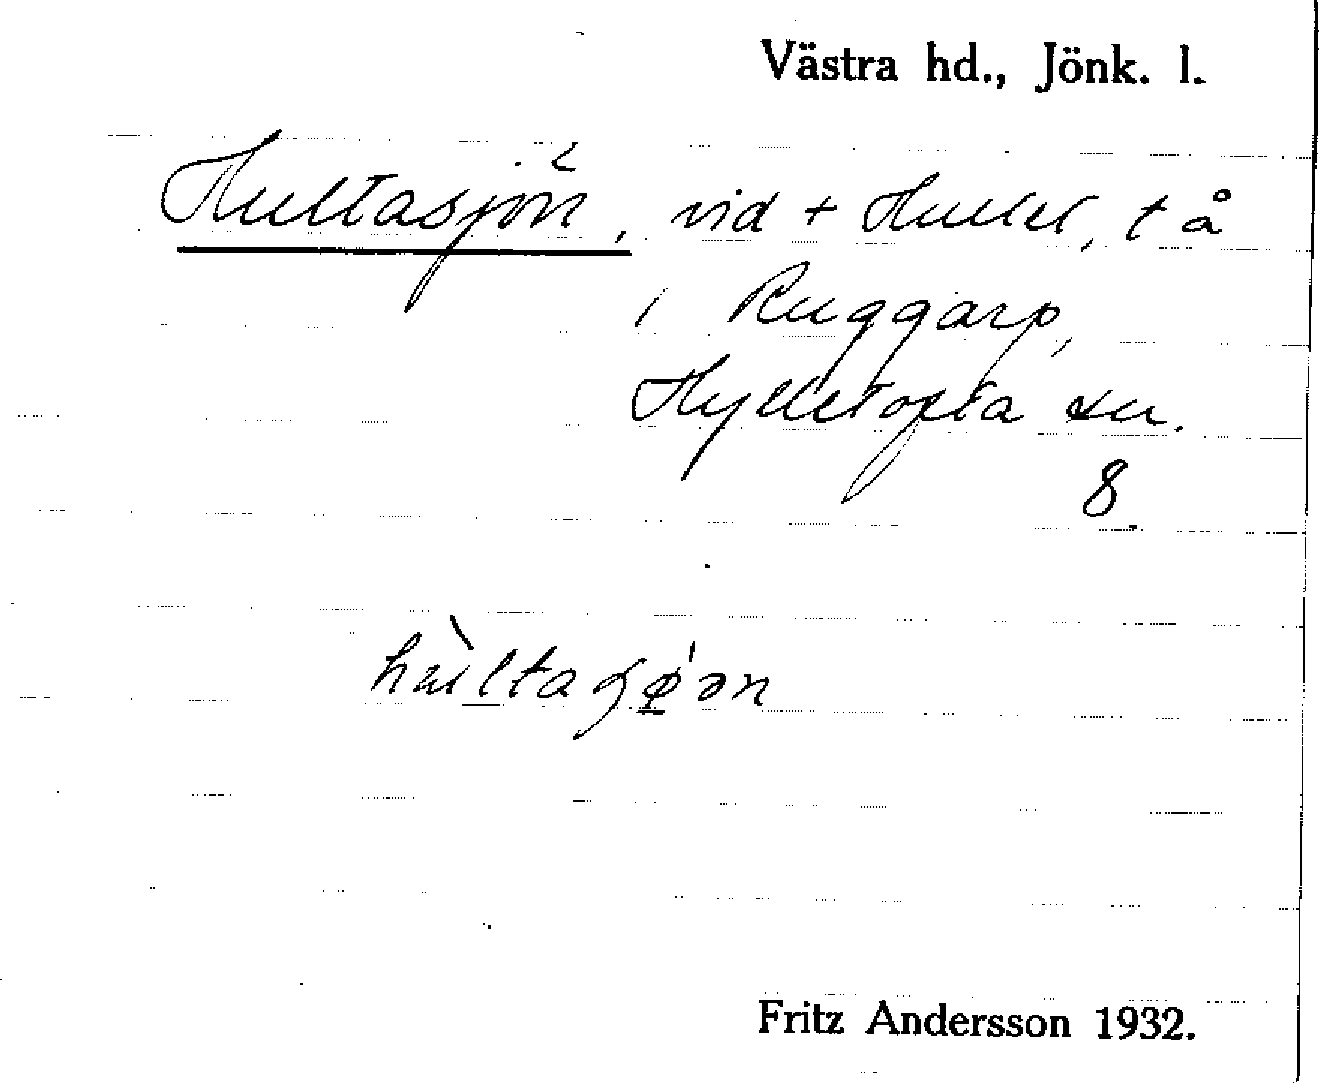 Västra hd., Jönk. l.
Hultasjön, vid + Hultet, t å
i Ruggarp,
Hylletofta sn.
8
hùltaʂǿ̱ən
Fritz Andersson 1932.